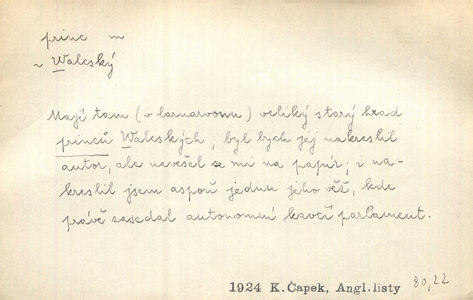 princ m
~ Walcský
Mají tam (v Carnarvonu) veliký starý hrad
princů Waleských; byl bych jej nakreslil
autor, ale nevešel se mi na papír; i na-
kreslil jsem aspoň jednu jeho věž, kde
právě zasedal autonomní kavčí parlament.
1924 K.Čapek, Angl.listy 80,22